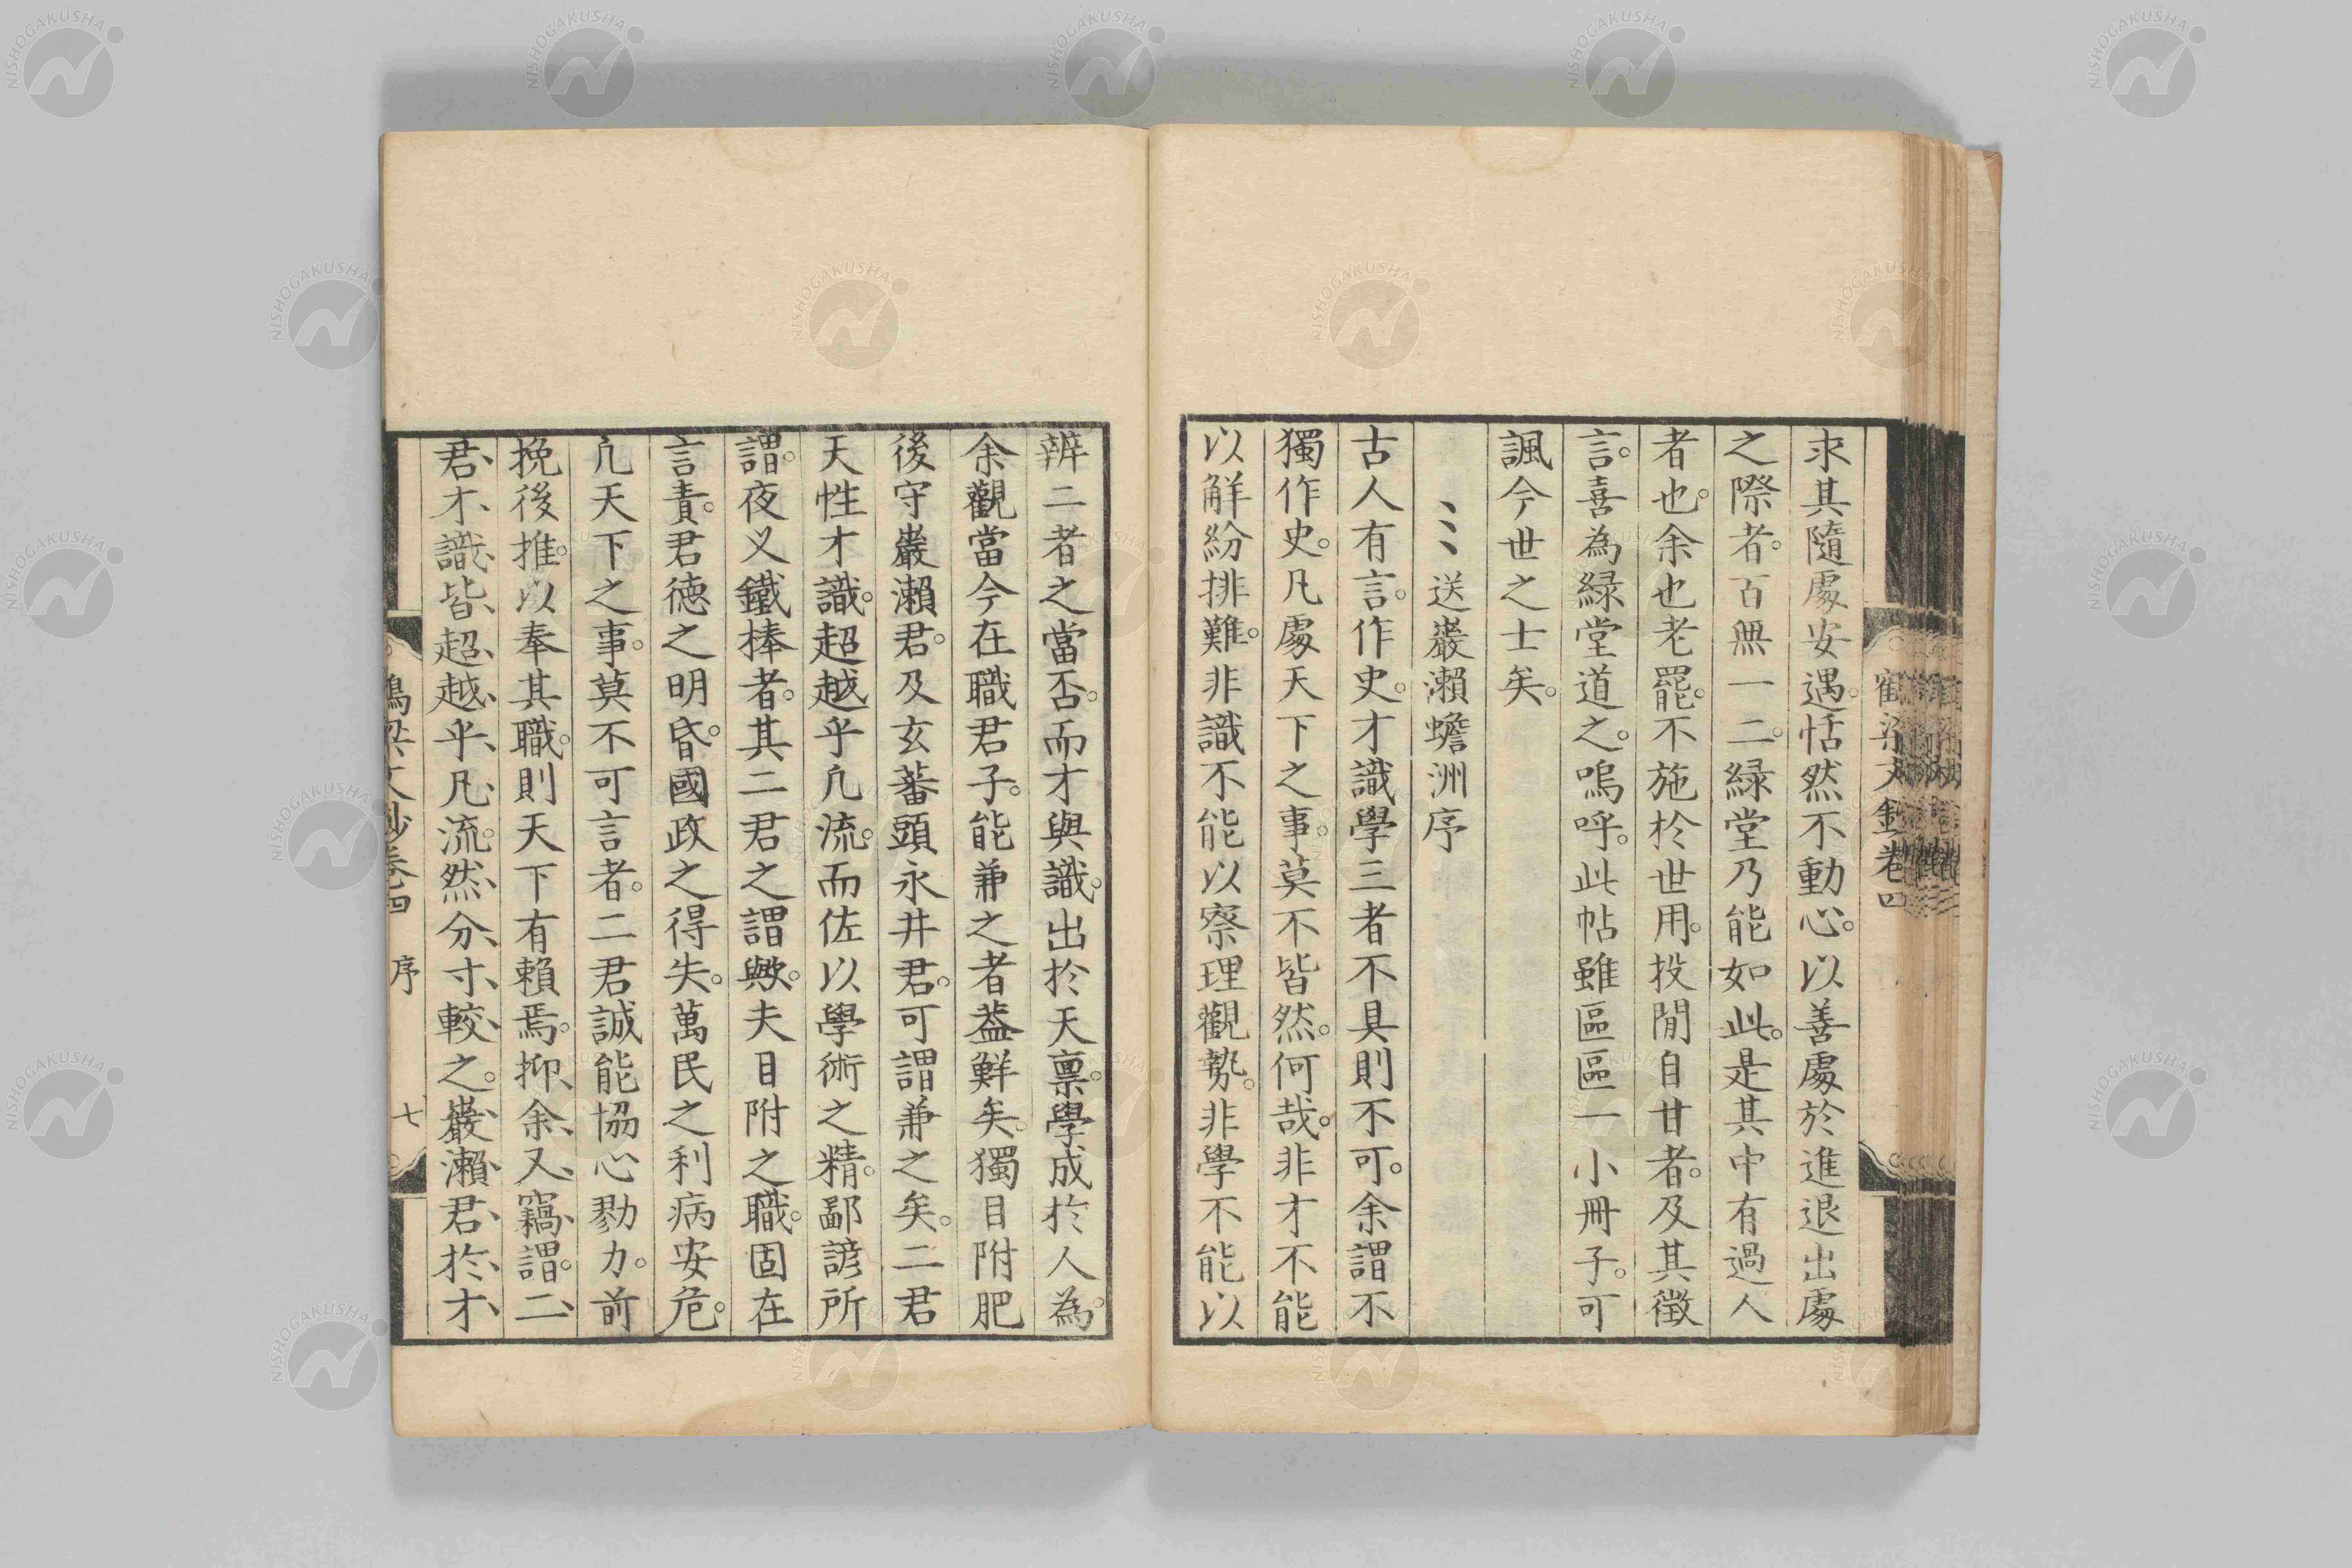 求其隨處安遇。恬然不動心。以善處於進退出處
之際者。百無一二。緑堂乃能如此。是其中有過人
者也。余也老罷。不施於世用。投閒自甘者。及其徵
言。喜為緑堂道之。嗚呼。此帖雖區區一小冊子。可
諷今世之士矣。
送巖瀨蟾洲序
古人有言。作史。才識學三者不具則不可。余謂不
獨作史。凡處天下之事。莫不皆然。何哉。非才不能
以解紛排難。非識不能以察理觀勢。非學不能以
辨二者之當否。而才與識。出於天稟。學成於人為。
余觀當今在職君子。能兼之者葢鮮矣。獨目附肥
後守巖瀨君。及玄蕃頭永井君。可謂兼之矣。二君
天性才識。超越乎凢流。而佐以學術之精。鄙諺所
謂。夜叉鐵棒者。其二君之謂歟。夫目附之職。固在
言責。君德之明昏。國政之得失。萬民之利病安危。
凢天下之事。莫不可言者。二君誠能協心勠力。前
挽後推。以奉其職。則天下有賴焉。抑余又竊謂。二
君才識皆超越乎凡流。然分寸較之。巖瀨君於才
鶴梁文鈔卷四 序 七
NISHOGAKUSHA